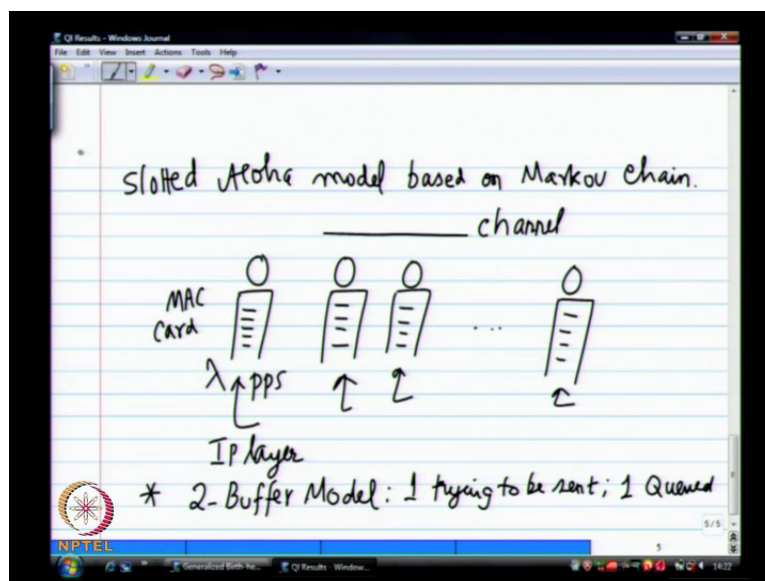 QI Results - Windows Journal
File Edit View Insert Actions Tools Help
Slotted Aloha model based on Markov chain.
channel
MAC
Card
...
λ pps
IP layer
* 2-Buffer Model: 1 trying to be sent; 1 Queued
5/5
5
NPTEL
Generalized Birth-he...
QI Results - Window...
14:22